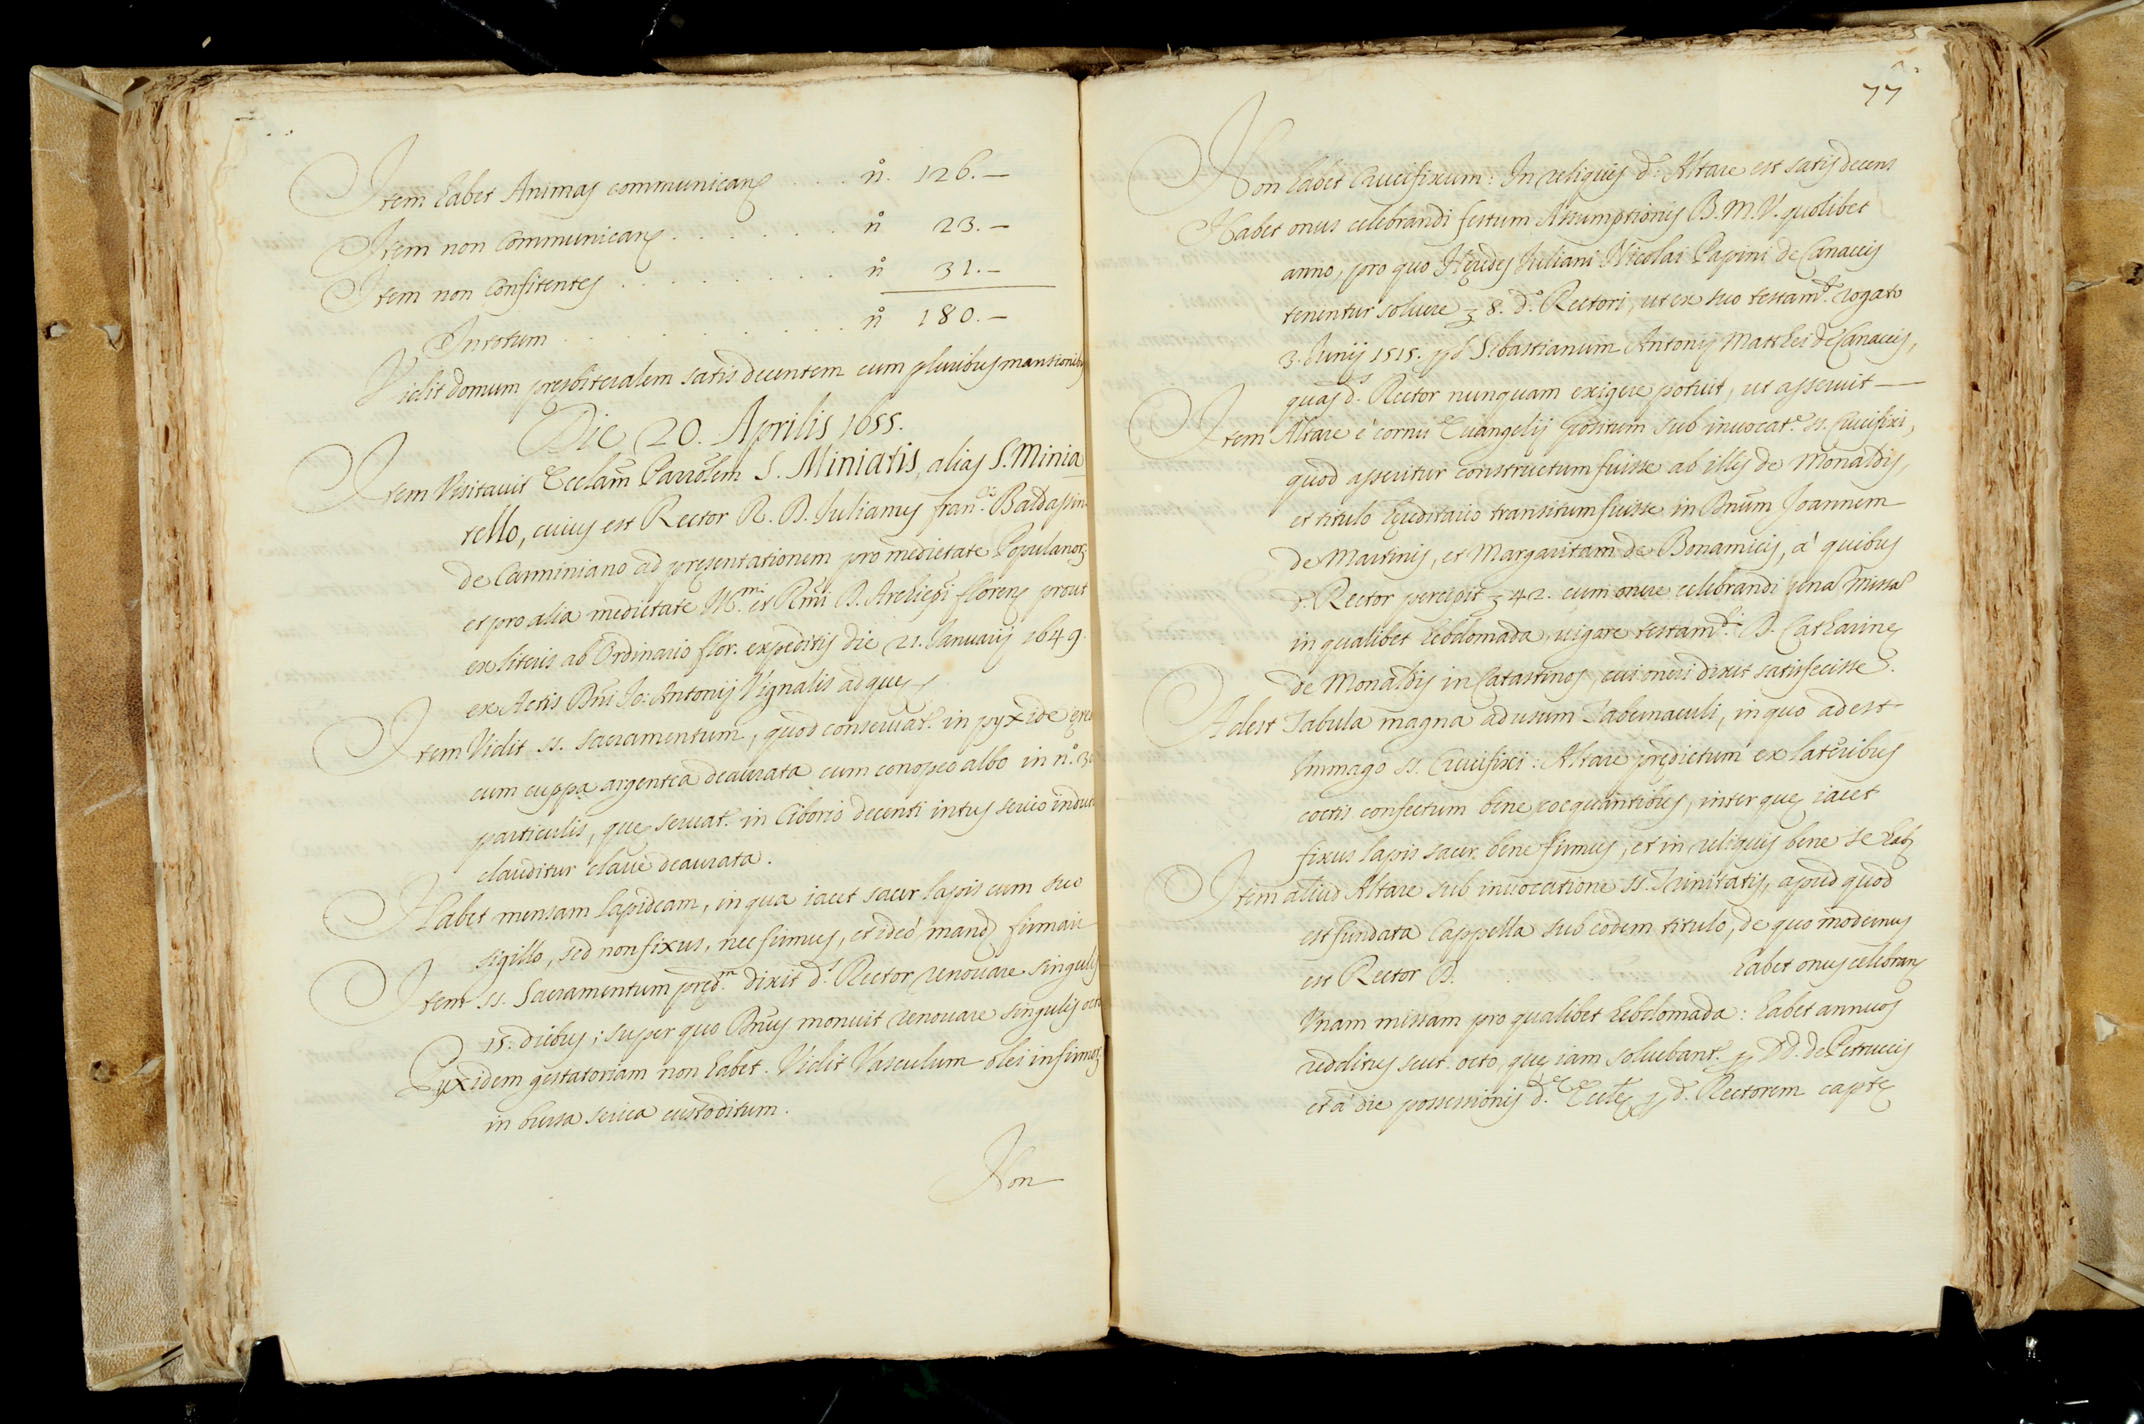 Item habet Animas communicanẽ . . . . n.° 126.—
Item non Communicanẽ . . . . . . . n° 23.—
Item non Confitentes . . . . . . . . n° 31.—
In totum . . . . . . . . . n° 180.—
Vidit domum presbiteralem satis decentem cum pluribus mansionibus
Die 20. Aprilis 1655.
Item Visitavit Eccl̃am Parrõlem S. Miniatis, alias S. Minia
tello, cuius est Rector R. D. Iulianus Fran.ci Baldassin
de Carminiano ad pręsentationem pro medietate Populanor
et pro alia medietate Ill.mi et Rm̃i D. Archiep̃i floreñ prout
ex literis ab Ordinario flor. expeditis die 21. Ianuarij 1649.
ex Actis Dñi Io: Antonij Vignalis ad quę
Item Vidit ss. Sacramentum, quod conservat.r in pyxide
cum cuppa argentea deaurata cum conopeo albo in n.°
particulis, quę servat.r in Ciborio decenti intus serico
clauditur clave deaurata.
Habet mensam lapideam, in qua iacet sacer lapis cum suo
sigillo, sed non fixus, nec firmus, et ideò mand. firmari
Item ss. Sacramentum pręd.m dixit d.s Rector renovare singulis
15. diebus; super quo Dñus monuit renovare singulis octo
Pyxidem gestatoriam non habet. Vidit Vasculum olei infirmor
in bursa serica custoditum.
Non
77
Non habet Crucifixum: In reliquis d.m Altare est satis decens
Habet onus celebrandi festum Assumptionis B. M. V. quolibet
anno, pro quo Hęredes Iuliani Nicolai Papini de Canaccis
tenentur solvere 8. d.o Rectori, ut ex suo testam.to rogato
3. Iunij 1515. p̱ s. Sebastianum Antonij Matthei de Canaccis,
quas d.s Rector nunquam exigere potuit, ut asseruit —
Item Altare è cornu Euangelij positum sub invocat.e ss. Crucifixi,
quod asseritur constructum fuisse ab illis de Monaldis,
et titulo hęreditario transitum fuisse in Dñum Joannem
de Martinis, et Margaritam de Bonamicis, à quibus
d.s Rector percipit 42. cum onere celebrandi unam missã
in qualibet hebdomada, vigore testam.ti D. Catharinę
de Monaldis in Catastinos, cui oneri dixit satisfecisse.
Adest Tabula magna ad usum Tabernaculi, in quo adest
Immago ss. Crucifixi: Altare prędictum ex lateribus
coctis confectum bene coequantibus, inter quę iacet
fixus lapis sacer bene firmus, et in reliquis bene se hab
Item aliud Altare sub invocatione ss. Trinitatis, apud quod
est fundata Cappella sub eodem titulo, de quo modernus
est Rector D. habet onus celebranđ
Vnam missam pro qualibet hebdomada: habet annuos
redditus scut. octo, quę iam solvebant.r p̱ DD. de Petruccis
et à die possessionis d.ę Eccl.ę p̱ d. Rectorem captę